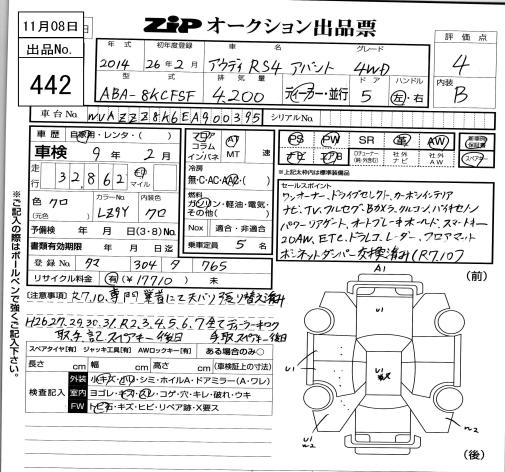 11月08日
出品No.
442
ZIP オークション出品票
評価点
4
内装
B
年式 初年度登録 車名 グレード
2014 26年2月 アウディ RS4 アバント 4WD
型式 排気量 ドア ハンドル
ABA-8KCFSF 4.200 ディーラー・並行 5 左・右
車台No. WUAZZZ8K6EA900395 シリアルNo.
車歴 自家用・レンタ・( )
車検 9年 2月
走行 32,862 km マイル
色 クロ (元色)
カラーNo. LZ9Y
内装色 クロ
予備検 年 月 日(3・8)No.
書類有効期限 年 月 日迄
登録No. タマ 304 タ 765
リサイクル料金 有(¥17710)無
フロア コラム インパネ AT MT 速
冷房 無・C・AC・AAC・( )
燃料 ガソリン・軽油・電気・その他( )
Nox 適合・非適合
乗車定員 5 名
PS PW SR 革 AW
ナビ エアB 社外ナビ 社外AW
新車時保証書
スペアキー
※上記太枠内は標準装備品
セールスポイント
ワンオーナー、ドライブセレクト、カーボンインテリア
ナビ、TV、フルセグ、BOXラ、クルコン、ハイキセノン
パワーリアゲート、オートブレーキホールド、スマートキー
20AW、ETC、ドラレコ、レーダー、フロアマット
ボンネットダンパー交換済み(R7.10)
[注意事項]
H26.27.29.30.31.R2.3.4.5.6.7全てディーラーキロク
取手記、スペアキー後日
スペアタイヤ[有] ジャッキ工具[有] AWロックキー[有] ある場合のみ○
長さ cm 幅 cm 高さ cm (車検証上の寸法)
検査記入
外装 小キズ・ハリ・シミ・ホイルA・ドアミラー(A・ワレ)
室内 ヨゴレ・キズ・スレ・コゲ・穴・キレ・破れ・ウキ
FW トビ石・キズ・ヒビ・リペア跡・X要ス
A1
(前)
U1
U1
U1
W2
W2
(後)
※ご記入の際はボールペンで強くご記入下さい。